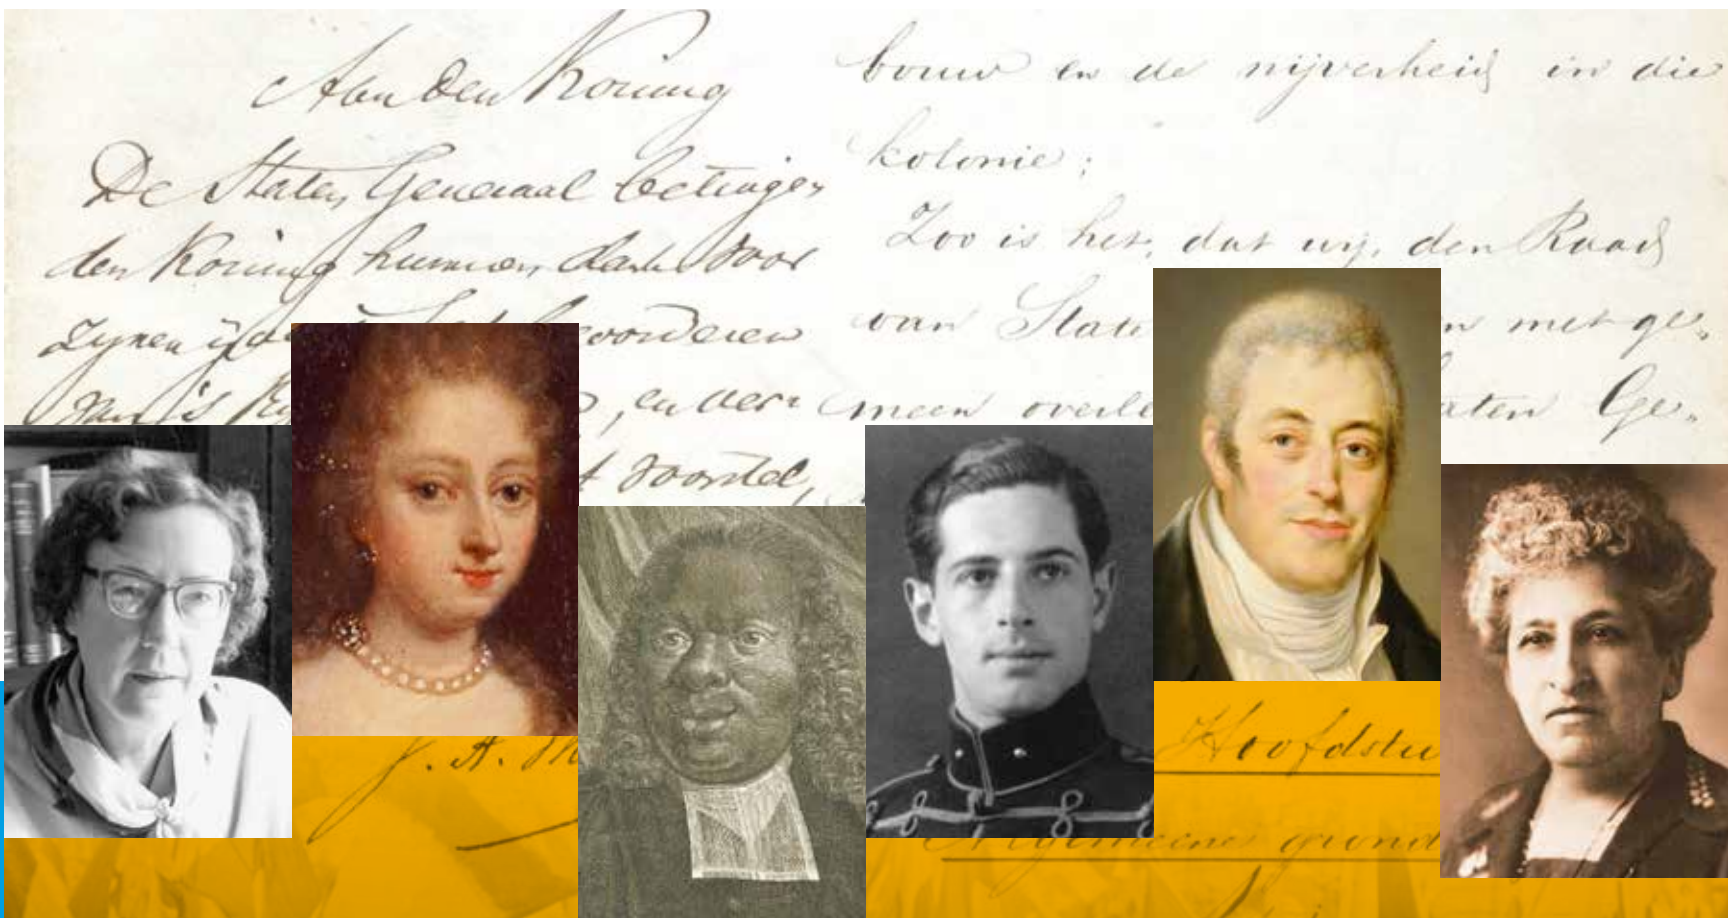 Aan den Koning
De Staten Generaal betuigen
den Koning hunnen dank voor
zynen
bevorderen
van 's
, en ver=
voorstel,
bouw en de nijverheid in die
kolonie;
Zoo is het, dat wij, den Raad
van State
n met ge=
meen overle
aten Ge=
J. A.
Hoofdstu
Algemeene grond